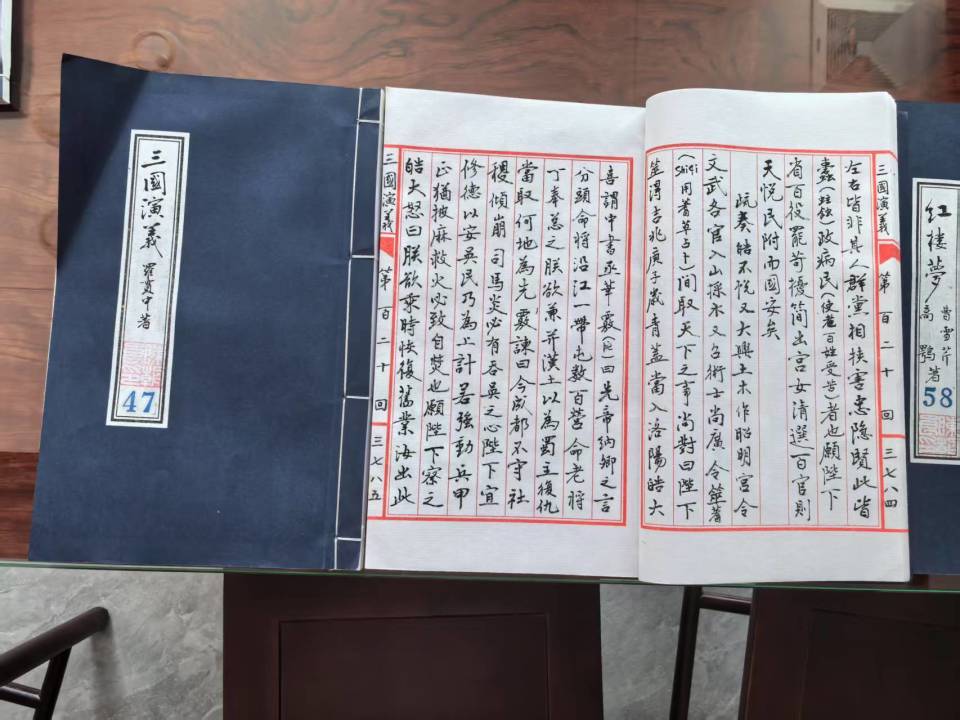 三國演義
羅貫中 著
47
紅樓夢
曹雪芹
高鶚 著
58
三國演義 第百二十回 三七八四
左右皆非其人群黨相挾害忠隱賢此皆
蠹(蛀蝕)政病民(使老百姓受苦)者也願陛下
省百役罷苛擾簡出宮女清選百官則
天悅民附而國安矣
疏奏皓不悅又大興土木作昭明宮令
文武各官入山採木又召術士尚廣令筮蓍
(shiqi用蓍草占卜)間取天下之事尚對曰陛下
筮得吉兆庚子歲青蓋當入洛陽皓大
喜謂中書丞華覈曰先帝納卿之言
分頭命將沿江一帶屯數百營命老將
丁奉总之朕欲兼并漢土以為蜀主復仇
當取何地為先覈諫曰今成都不守社
稷傾崩司馬炎必有吞吳之心陛下宜
修德以安吳民乃為上計若強動兵甲
正猶披麻救火必致自焚也願陛下察之
皓大怒曰朕欲乘時恢復舊業汝出此
三國演義 第百二十回 三七八五